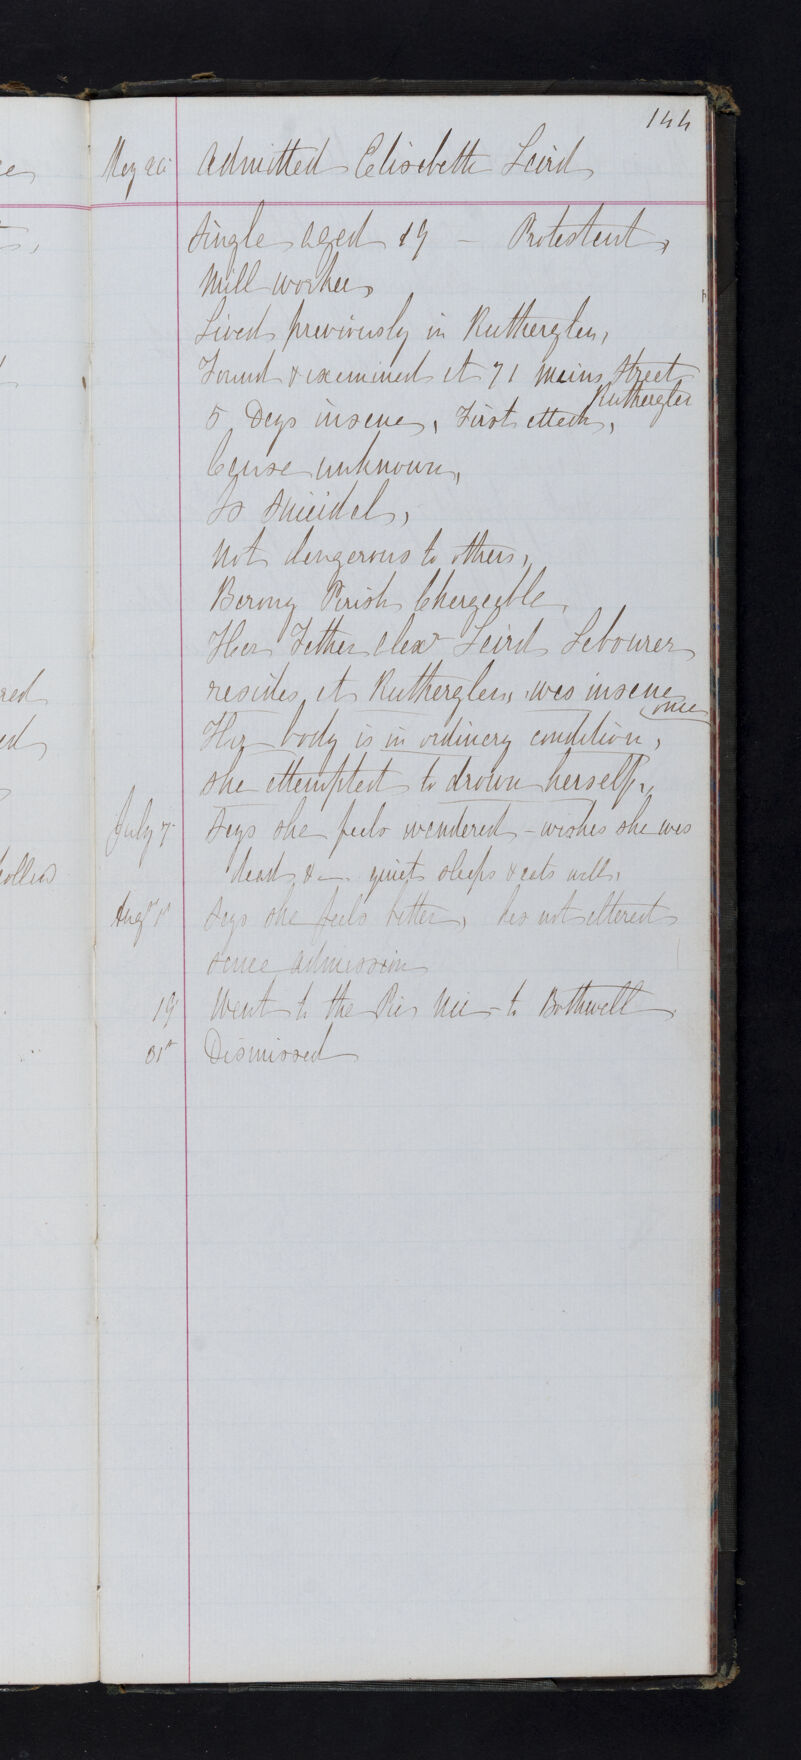 144
May Admitted Elisabeth Laird
single aged 19 – Protestant,
Mill worker,
Lived previously in Rutherglen,
Found & examined at 71 Main Street
Rutherglen
5 Days insane, First attack,
Cause unknown,
Is suicidal,
Not dangerous to others,
Barony Parish Chargeable,
Her Father Alexr Laird Labourer
resides at Rutherglen, was insane
once
Her body is in ordinary condition,
she attempted to drown herself,
July 7 Says she feels wandered – wishes she was
dead &c – quiet sleeps & eats well,
Augt 1st Says she feels better, has not altered
since admission
19 Went to the Pic Nic to Bothwell
31st Dismissed